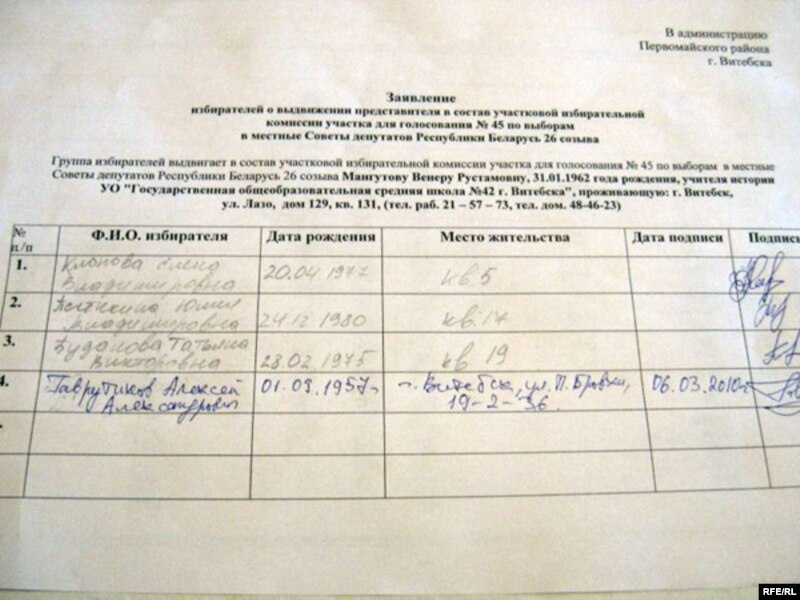 В администрацию
Первомайского района
г. Витебска
Заявление
избирателей о выдвижении представителя в состав участковой избирательной
комиссии участка для голосования № 45 по выборам
в местные Советы депутатов Республики Беларусь 26 созыва
Группа избирателей выдвигает в состав участковой избирательной комиссии участка для голосования № 45 по выборам в местные
Советы депутатов Республики Беларусь 26 созыва Мангутову Венеру Рустамовну, 31.01.1962 года рождения, учителя истории
УО "Государственная общеобразовательная средняя школа №42 г. Витебска", проживающую: г. Витебск,
ул. Лазо, дом 129, кв. 131, (тел. раб. 21 – 57 – 73, тел. дом. 48-46-23)
№ п/п Ф.И.О. избирателя Дата рождения Место жительства Дата подписи Подпись
1. Клопова Елена 20.04.1977 кв 5
Владимировна
2. Юлия
Владимировна 24.12.1980 кв 17
3. Буданова Татьяна
Викторовна 28.02.1975 кв 19
4. Гаврутиков Алексей 01.09.1957г. г. Витебск, ул. П. Бровки, 06.03.2010г.
Александрович 19-2-36
RFE/RL